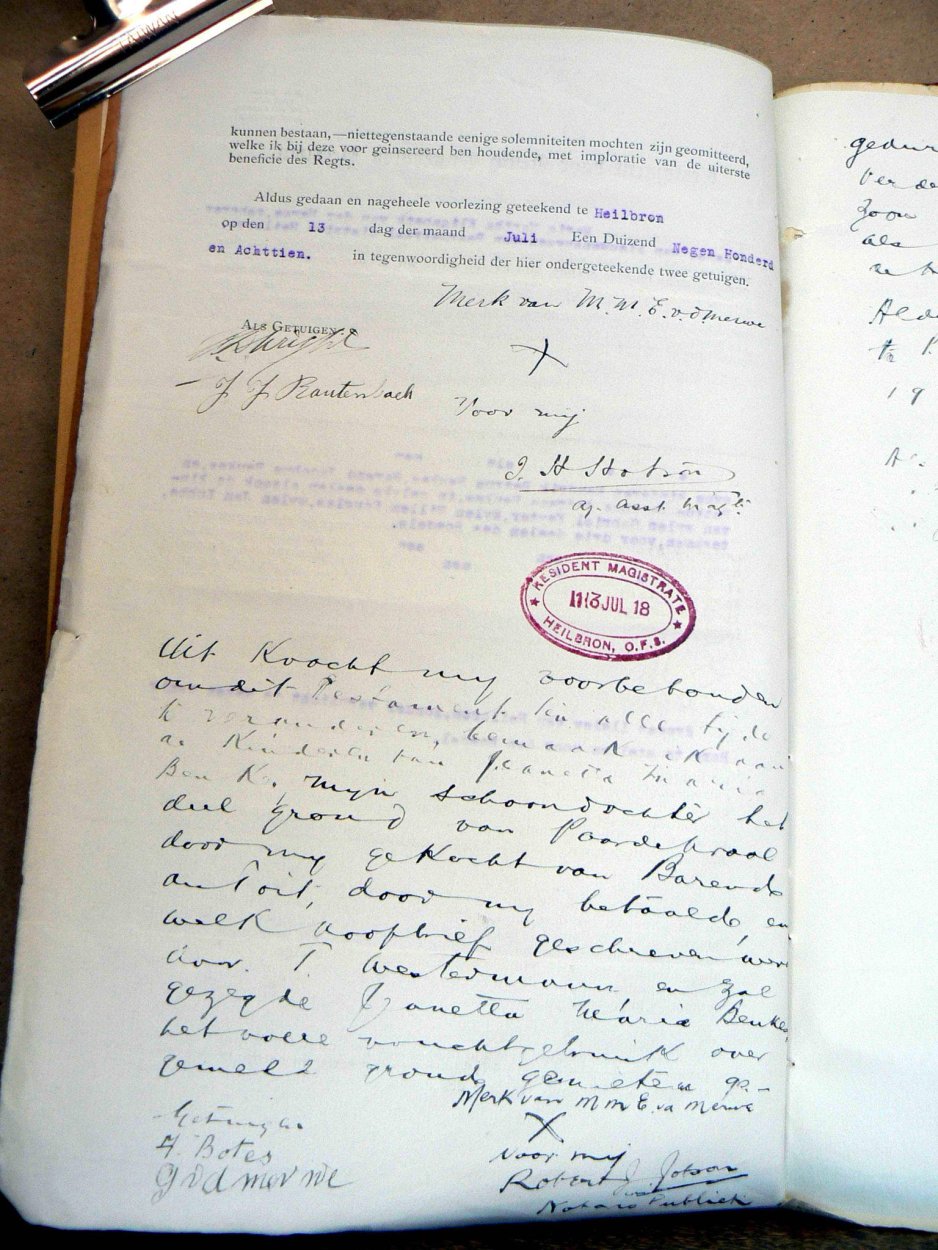 TAIWAN
kunnen bestaan,—niettegenstaande eenige solemniteiten mochten zijn geomitteerd,
welke ik bij deze voor geinsereerd ben houdende, met imploratie van de uiterste
beneficie des Regts.
Aldus gedaan en nageheele voorlezing geteekend te Heilbron
op den 13 dag der maand Juli Een Duizend Negen Honderd
en Achttien. in tegenwoordigheid der hier ondergeteekende twee getuigen.
Merk van M. M. E. v. d Merwe
ALS GETUIGEN
X
J J Rautenbach
Voor mij
J H
ag. asst. Magte.
RESIDENT MAGISTRATE
13 JUL 18
HEILBRON, O.F.S.
Uit Kracht my voorbehouden
om dit Testament in alle tyde
te veranderen, bemaak ek aan
de Kinderen van Jeanetta Maria
Beuke, mijn schoondochter het
deel grond van Paardekraal
door my gekocht van Barend
du Toit, door my betaalde, en
welk koopbrief geschreven werd
door T Westermann en zal
gezegde Janetta Maria Beukes
het volle vruchtgebruik over
gemeld grond genieten ge-
Merk van M M E. vd Merwe
X
Getuighe
H. Botes
G v d merwe
voor mij
Robert J. Jobson
Notaris Publiek
gedur
ver de
Zoon
als
Alde
te
19